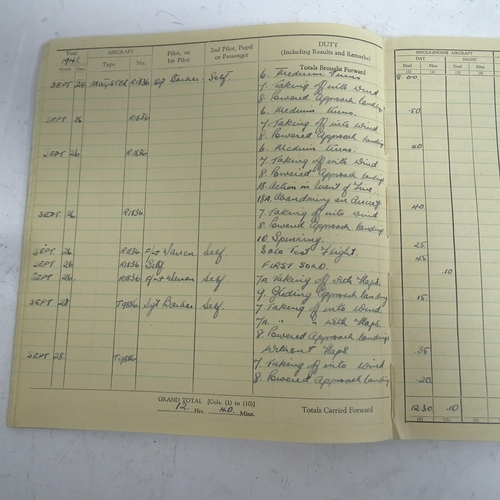 Year AIRCRAFT Pilot, or 1st Pilot 2nd Pilot, Pupil or Passenger DUTY (Including Results and Remarks) SINGLE-ENGINE AIRCRAFT
1941 DAY NIGHT
Month Date Type No. Dual Pilot Dual Pilot
(1) (2) (3) (4)
Totals Brought Forward
SEPT 24 MAGISTER R1836 Sgt Barber Self. 6. Medium Turns 8 00
7. Taking off into wind
8 Powered Approach landing
SEPT 26 R1836 6. Medium Turns. .50
7. Taking off into Wind
8 Powered Approach landings
SEPT 26. R.1836 6. Medium Turns. .40
7. Taking off into Wind
8 Powered Approach landings
18. Action in Event of Fire.
18A. Abandoning an Aircraft
SEPT. 26 R1836 7. Taking off into wind .40
8. Powered Approach landing
10. Spinning.
SEPT 26 R1836 Self Solo Test Flight. .25
SEPT 26 R1836 Self. FIRST SOLO. .10
SEPT 26 R1836 Self 7A Taking off with Flaps
9. Gliding Approach landing .15
SEPT 28 T9836 Sgt Barber Self. 7. Taking off into Wind
7A " " with Flaps
8. Powered Approach landings
without Flaps
SEPT 28. 7. Taking off into Wind
8. Powered Approach landing .20
GRAND TOTAL [Cols. (1) to (10)]
12 Hrs. 40 Mins. Totals Carried Forward 12 30 .10
(1) (2) (3) (4)